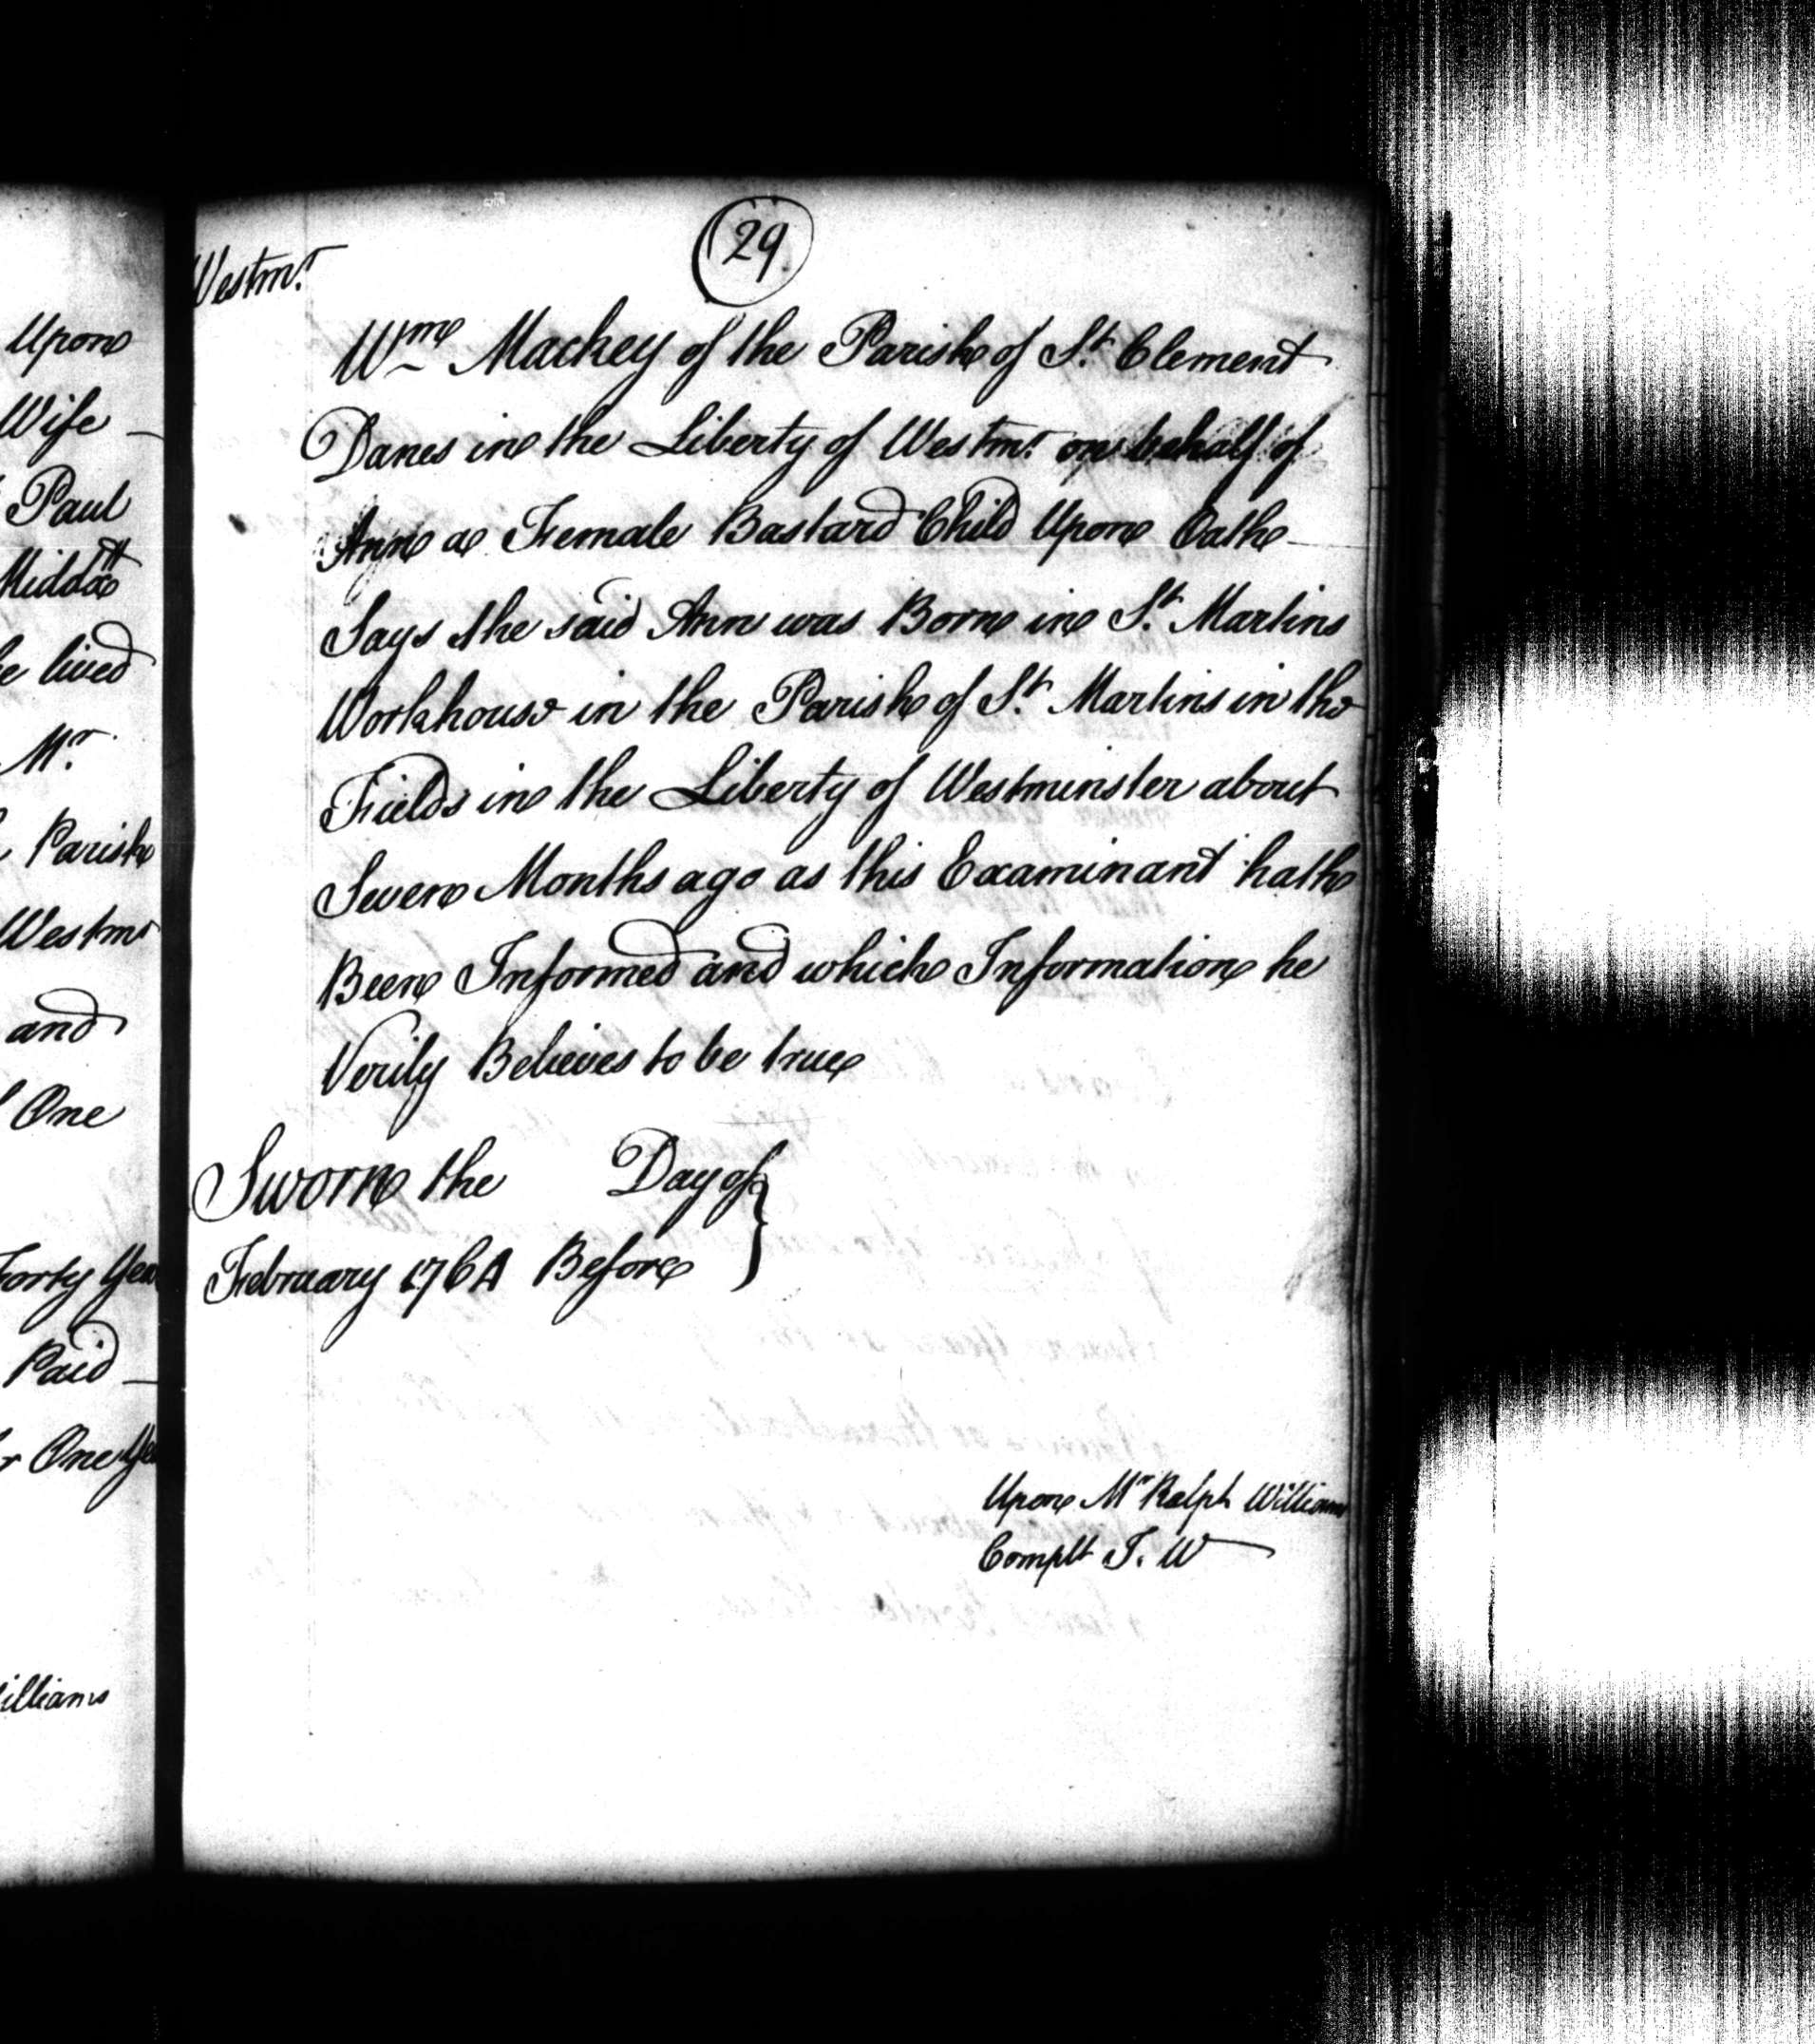 Upon
Wife
Paul
Middx
lived
Mr.
Parish
Westmr
and
One
Forty Yea
Paid
One Ye
illiams
29
Westmr.
Wm Mackey of the Parish of St. Clement
Danes in the Liberty of Westmr. on behalf of
Ann a Female Bastard Child Upon Oath
Says the said Ann was Born in St. Martins
Workhouse in the Parish of St. Martins in the
Fields in the Liberty of Westminster about
Seven Months ago as this Examinant hath
Been Informed and which Information he
Verily Believes to be true
Sworn the Day of
February 1764 Before
Upon Mr Ralph Williams
Complt T. W